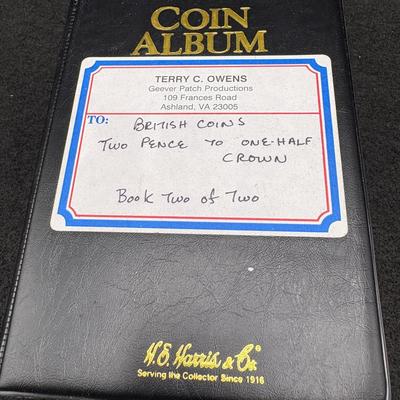 COIN
ALBUM
TERRY C. OWENS
Geever Patch Productions
109 Frances Road
Ashland, VA 23005
TO: BRITISH COINS
TWO PENCE TO ONE-HALF
CROWN
Book Two of Two
H.E. Harris & Co.®
Serving the Collector Since 1916